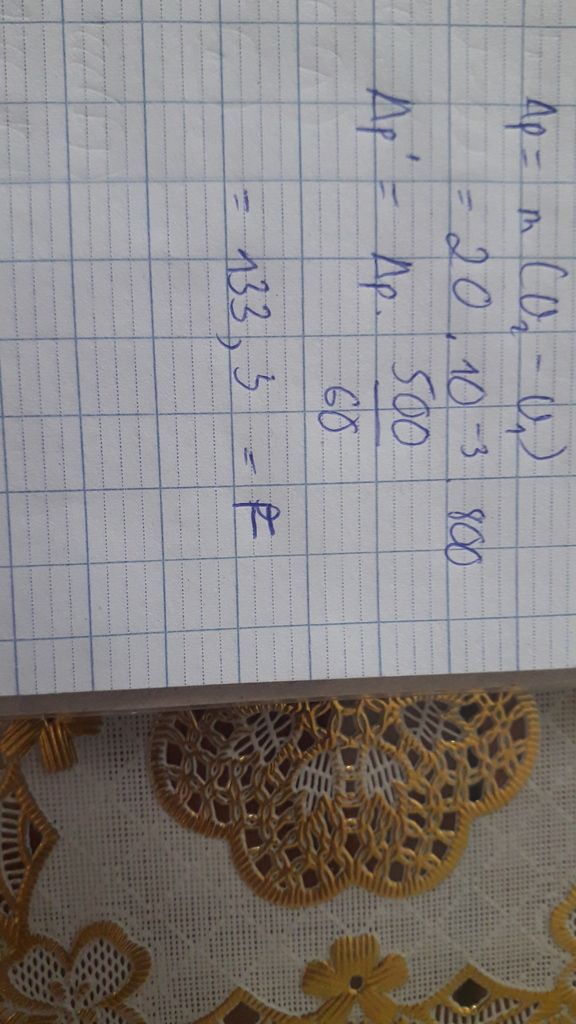 Δp = m (v₂ - v₁)
= 20 . 10⁻³ . 800
Δp' = Δp . 500/60
= 133,3 = F